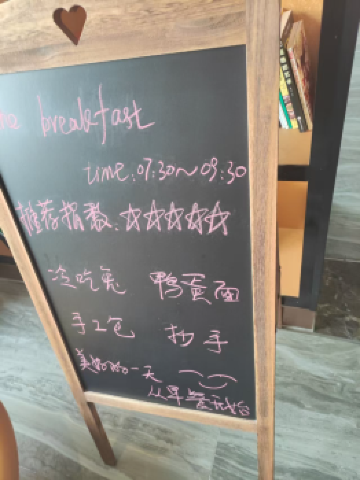 breakfast
time:07:30~09:30
推荐指数:☆☆☆☆☆
冷吃兔 鸭蛋面
手工包 抄手
美好的一天
从早餐开始